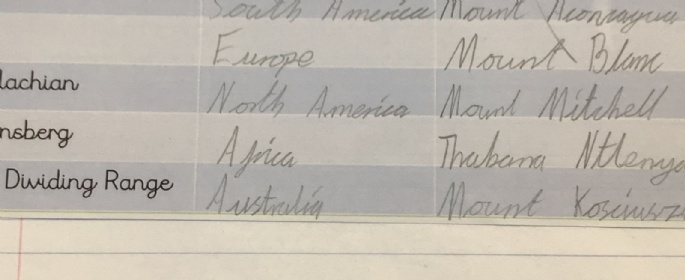 South America Mount Aconcagua
Europe Mount Blanc
lachian North America Mount Mitchell
nsberg Africa Thabana Ntlenya
Dividing Range Australia Mount Kosciusz